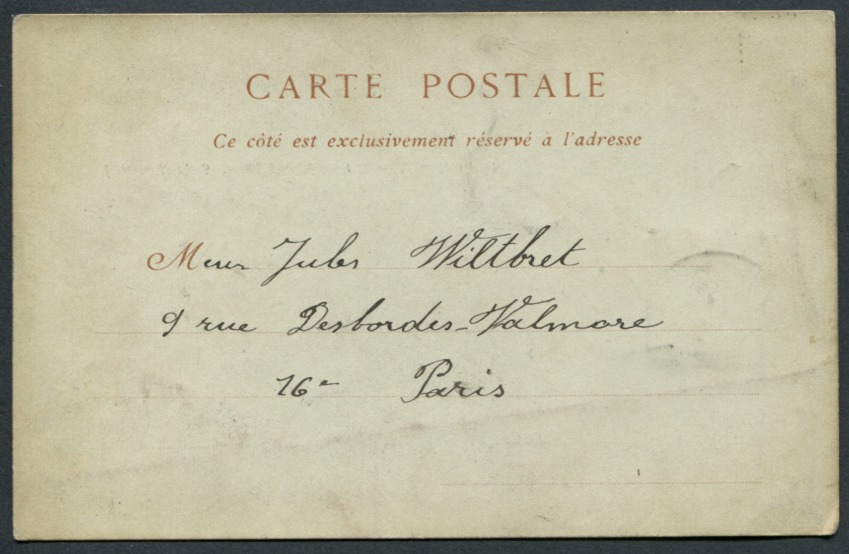 CARTE POSTALE
Ce côté est exclusivement réservé à l'adresse
Meur Jules Wiltbret
9 rue Desbordes-Valmore
16e Paris